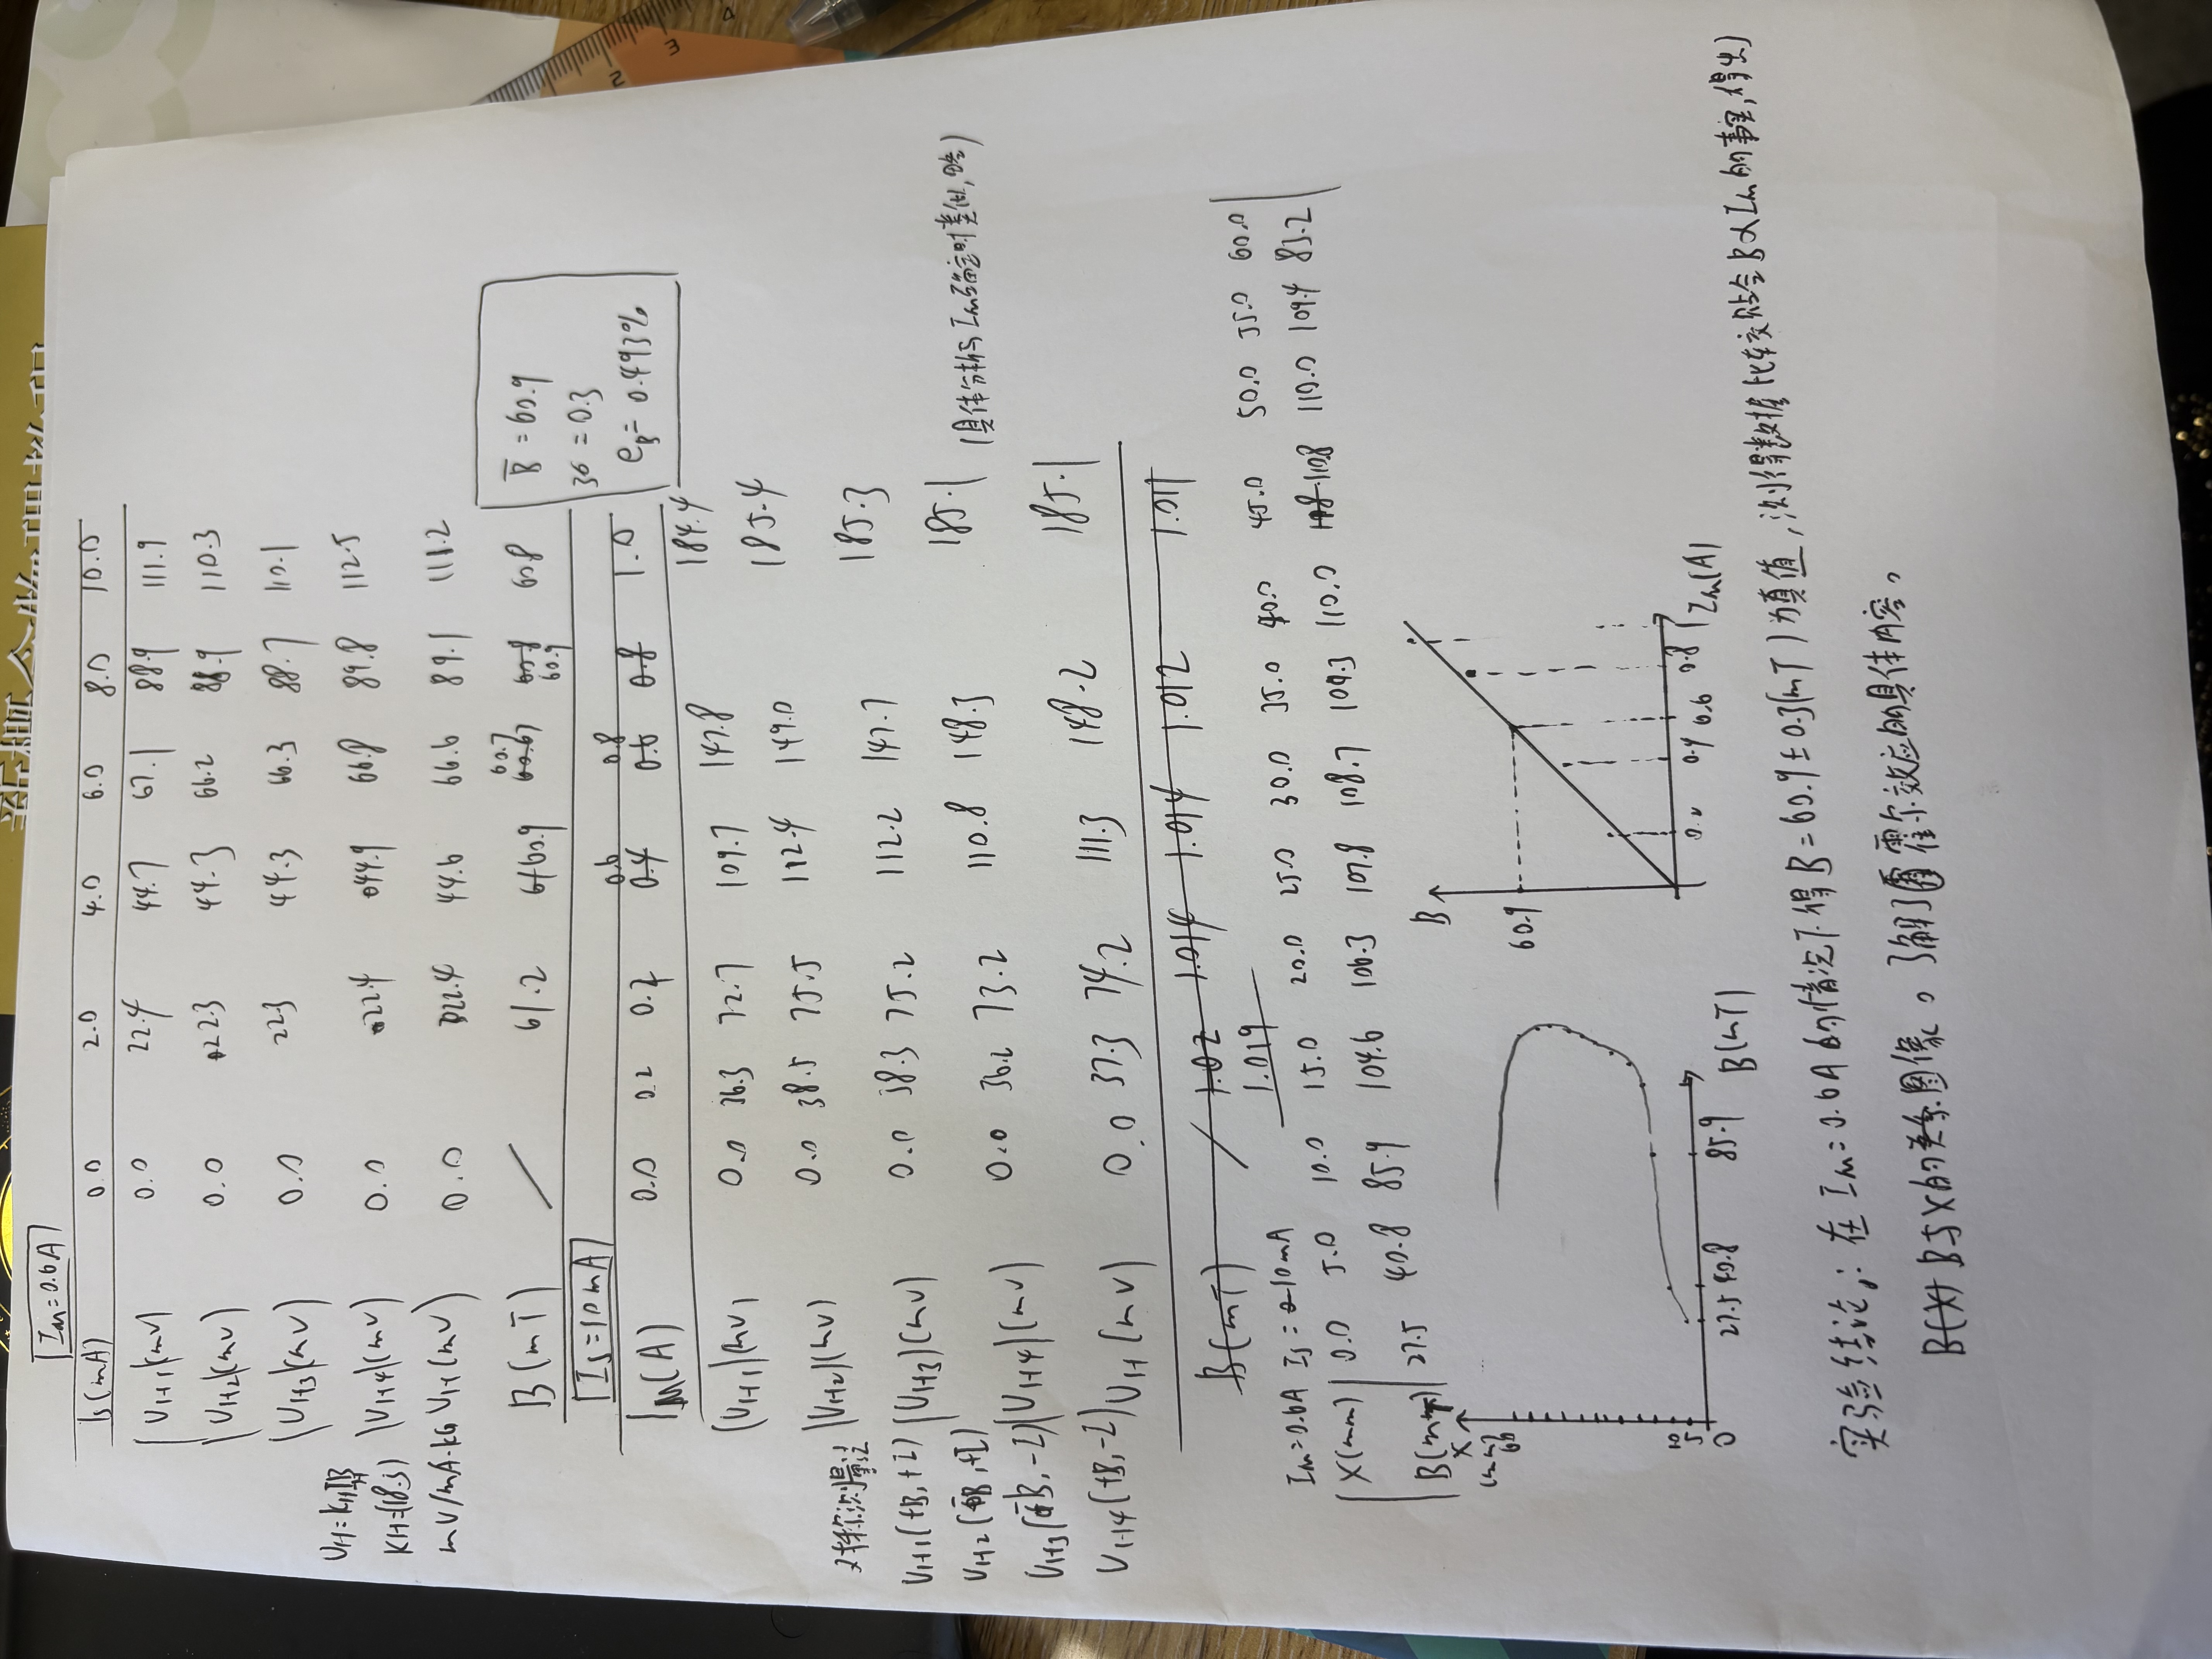 Im=0.6A
Is(mA) 0.0 2.0 4.0 6.0 8.0 10.0
|VH1|(mV) 0.0 22.4 44.7 67.1 88.9 111.9
|VH2|(mV) 0.0 22.3 44.3 66.2 88.9 110.3
|VH3|(mV) 0.0 22.3 44.3 66.3 88.7 110.1
|VH4|(mV) 0.0 22.4 44.9 66.8 89.8 112.5
VH(mV) 0.0 22.4 44.6 66.6 89.1 111.2
VH=KHIB
KH=(18.3)
mV/mA·KG
B(mT) / 61.2 60.9 60.7 60.9 60.8
B̄ = 60.9
3σ = 0.3
eB= 0.493%
Is=10mA
IM(A) 0.0 0.2 0.4 0.6 0.8 1.0
|VH1|(mV) 0.0 36.3 72.7 109.7 147.8 184.4
|VH2|(mV) 0.0 38.5 75.5 112.4 149.0 185.4
|VH3|(mV) 0.0 38.3 75.2 112.2 147.7 185.3
|VH4|(mV) 0.0 36.2 73.2 110.8 148.3 185.1
VH(mV) 0.0 37.3 74.2 111.3 148.2 185.1
对称测量法
VH1(+B,+I)
VH2(-B,+I)
VH3(-B,-I)
VH4(+B,-I)
B(mT) / 1.02 1.014 1.014 1.014 1.012 1.011
1.019
Im=0.6A Is=10mA
X(mm) 0.0 5.0 10.0 15.0 20.0 25.0 30.0 35.0 40.0 45.0 50.0 55.0 60.0
B(mT) 27.5 40.8 85.9 104.6 106.3 107.8 108.7 109.3 110.0 110.8 110.0 109.4 85.2
X
(mm)
60
10
5
0 27.5 40.8 85.9 B(mT)
B
60.9
0.4 0.6 0.8 1 Im(A)
实验结论: 在Im=0.6A的情况下得B=60.9±0.3(mT)为真值,测得数据比较贴合B∝Im的事实,得出
B(X) B与X的关系图像。了解了霍尔效应的具体内容。